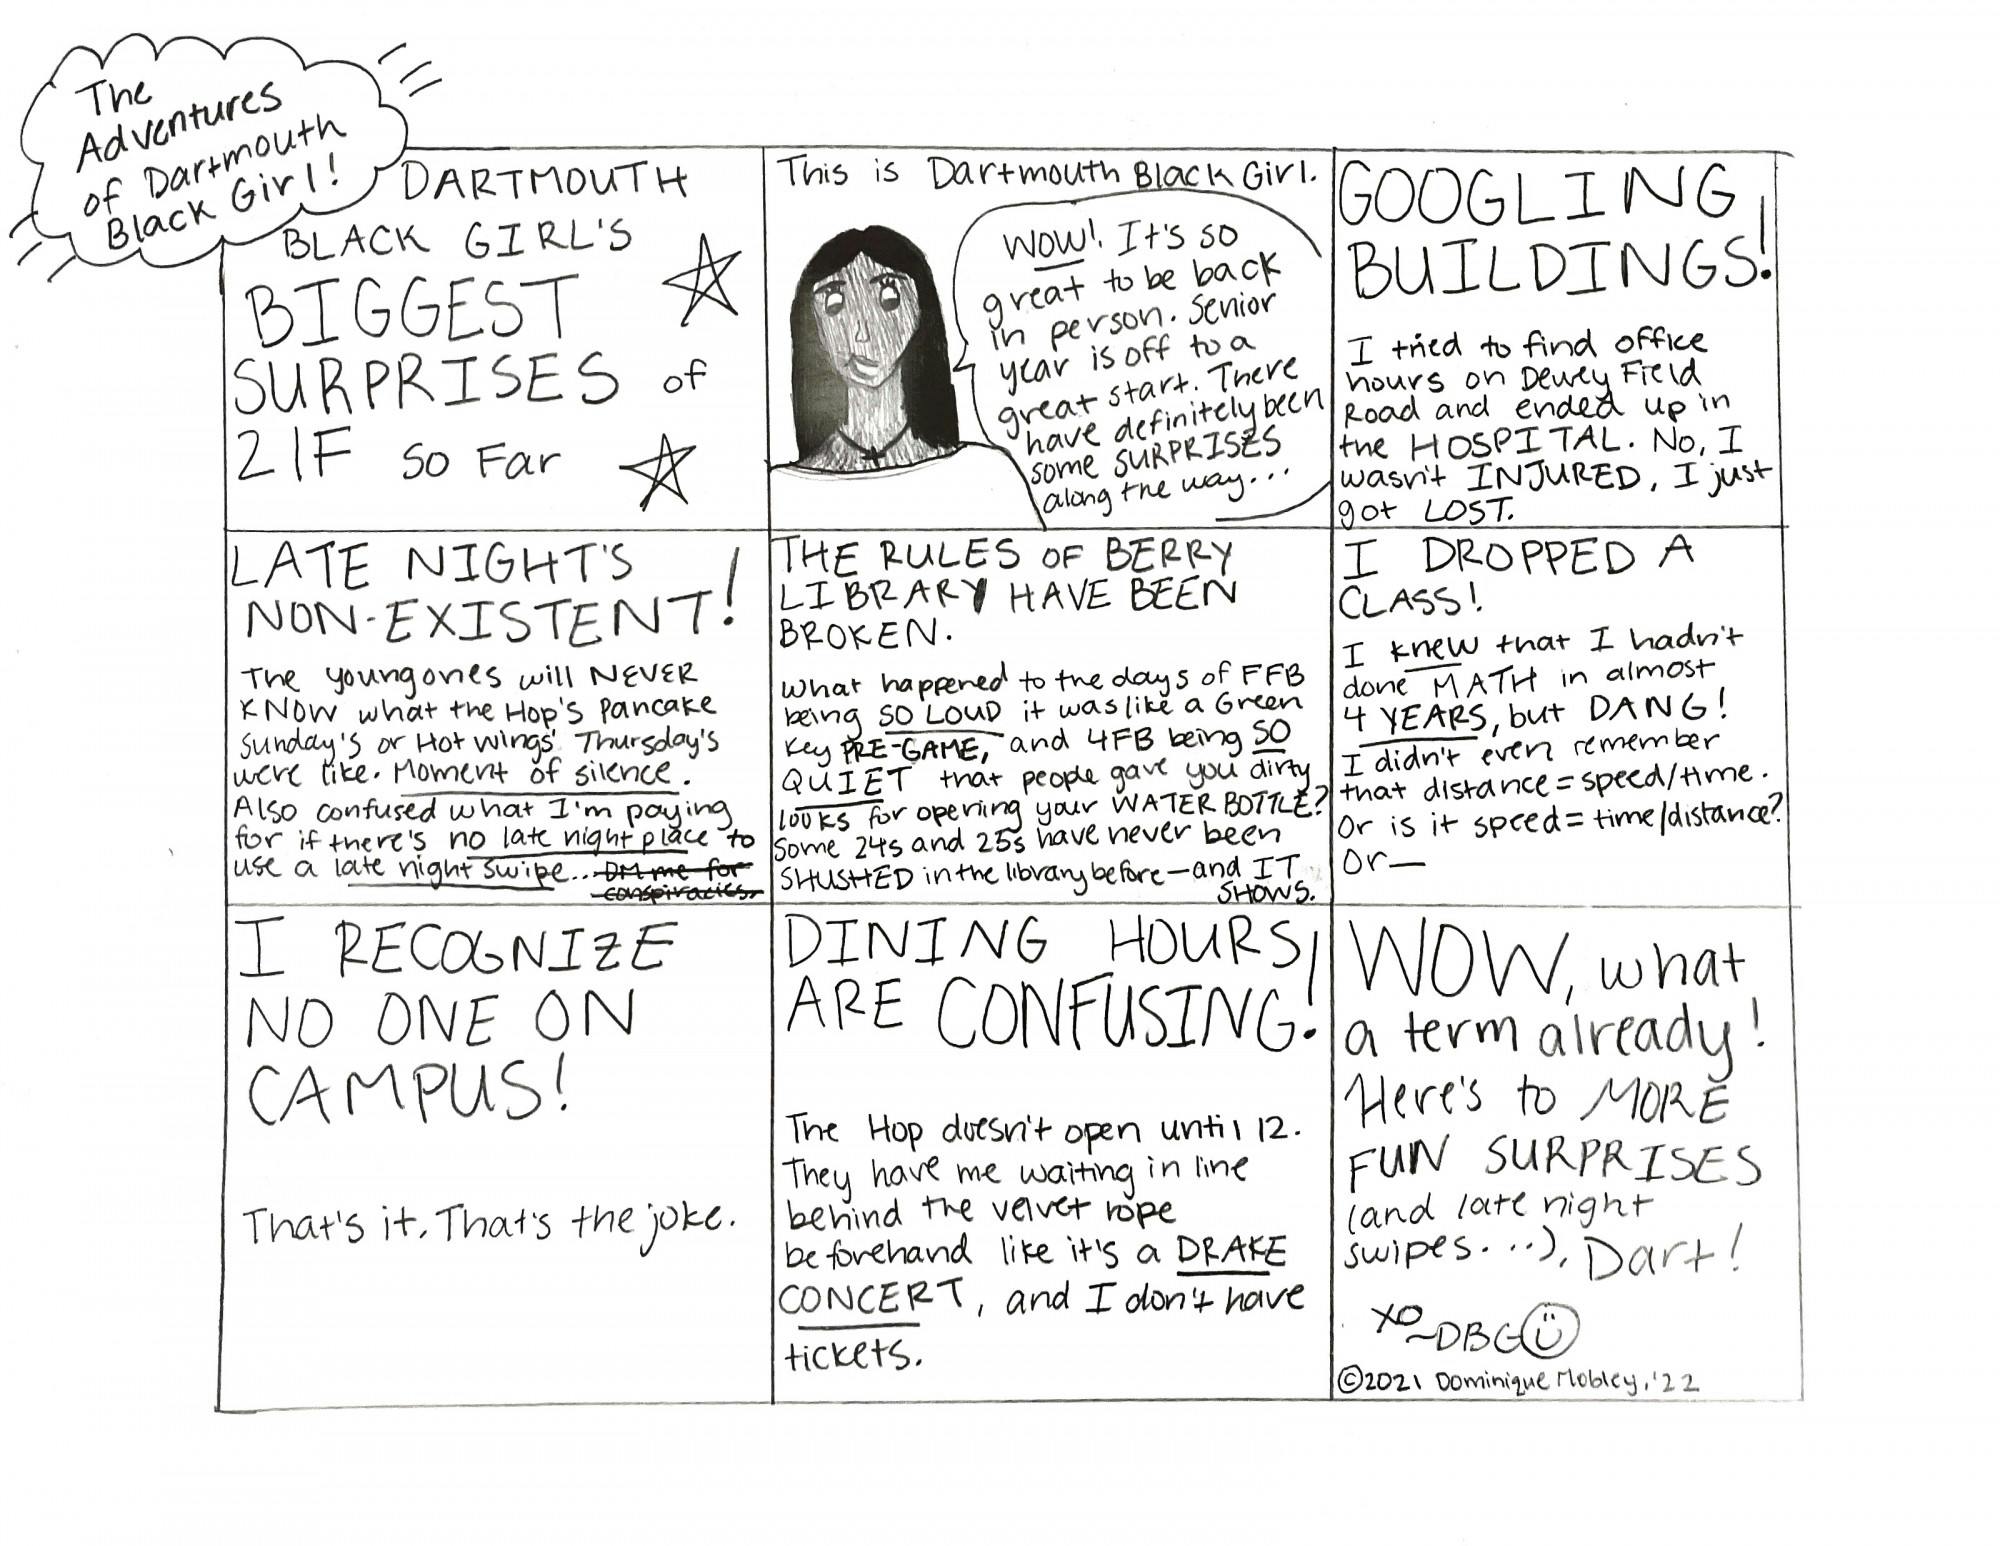 The
Adventures
of Dartmouth
Black Girl!
DARTMOUTH
BLACK GIRL'S
BIGGEST
SURPRISES of
21F so Far
This is Dartmouth Black Girl.
WOW! It's so
great to be back
in person. Senior
year is off to a
great start. There
have definitely been
some SURPRISES
along the way...
GOOGLING
BUILDINGS!
I tried to find office
hours on Dewey Field
Road and ended up in
the HOSPITAL. No, I
wasn't INJURED, I just
got LOST.
LATE NIGHT'S
NON-EXISTENT!
The young ones will NEVER
KNOW what the Hop's Pancake
Sunday's or Hot Wings' Thursday's
were like. Moment of silence.
Also confused what I'm paying
for if there's no late night place to
use a late night swipe... DM me for
conspiracies.
THE RULES OF BERRY
LIBRARY HAVE BEEN
BROKEN.
What happened to the days of FFB
being SO LOUD it was like a Green
Key PRE-GAME, and 4FB being SO
QUIET that people gave you dirty
looks for opening your WATER BOTTLE?
Some 24s and 25s have never been
SHUSHED in the library before—and IT
SHOWS.
I DROPPED A
CLASS!
I knew that I hadn't
done MATH in almost
4 YEARS, but DANG!
I didn't even remember
that distance = speed/time.
Or is it speed = time/distance?
Or—
I RECOGNIZE
NO ONE ON
CAMPUS!
That's it. That's the joke.
DINING HOURS
ARE CONFUSING!
The Hop doesn't open until 12.
They have me waiting in line
behind the velvet rope
beforehand like it's a DRAKE
CONCERT, and I don't have
tickets.
WOW, what
a term already!
Here's to MORE
FUN SURPRISES
(and late night
swipes....), Dart!
XO
~DBG
©2021 Dominique Mobley, '22